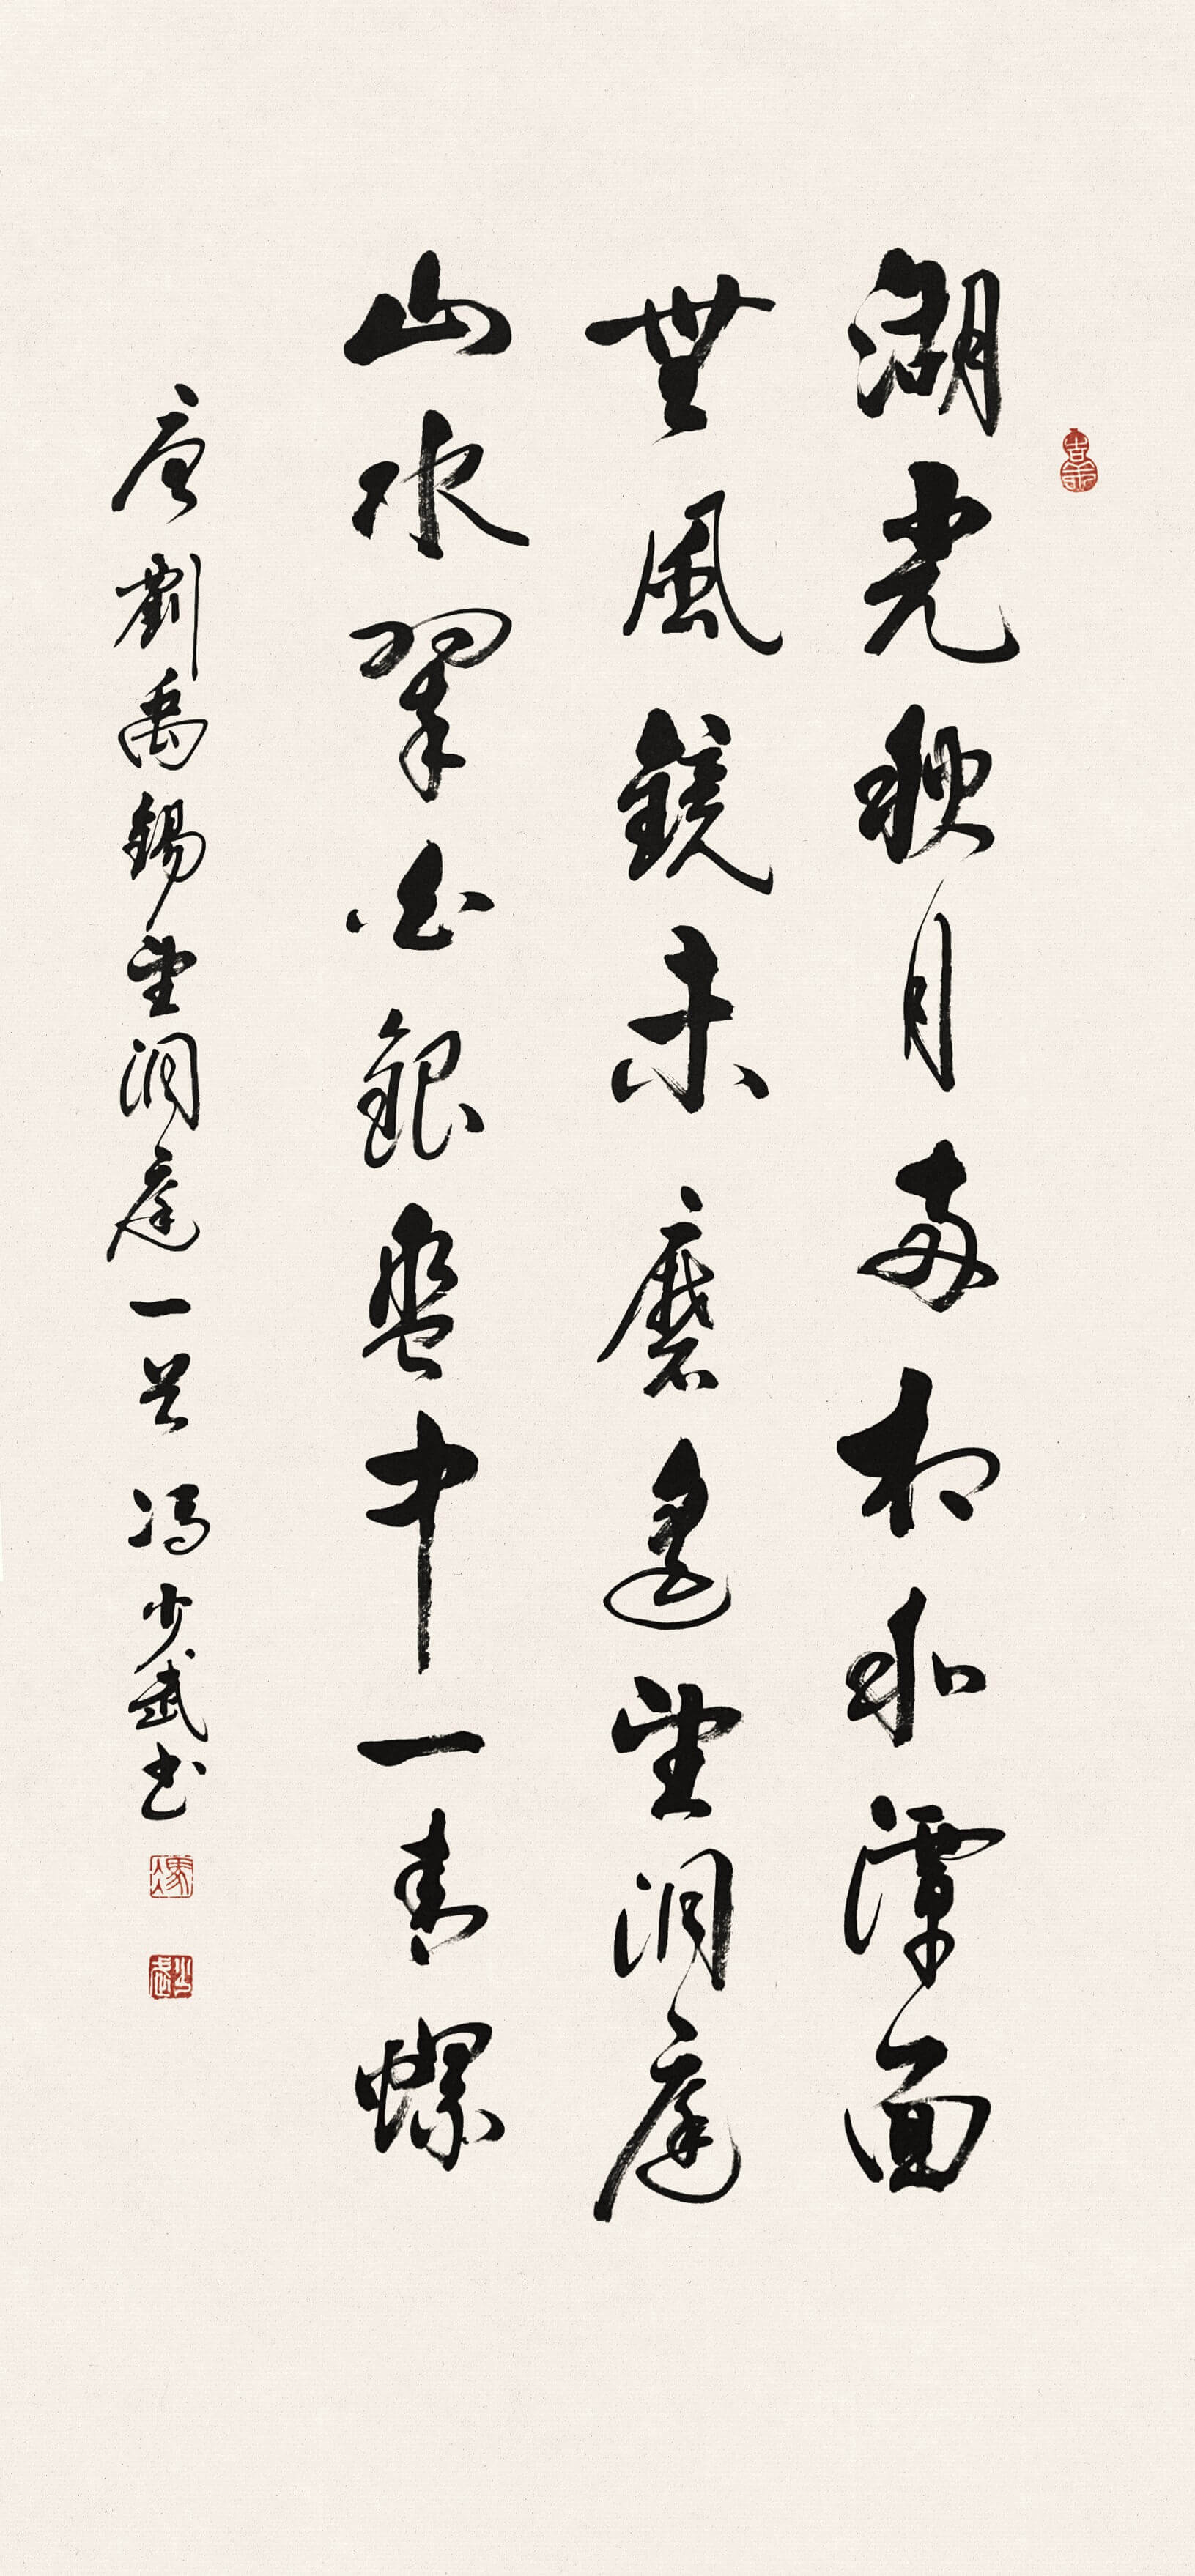 湖光秋月两相和潭面
無風鏡未磨遥望洞庭
山水翠白銀盤中一青螺
唐劉禹錫望洞庭一首 冯少武书
馮
少武